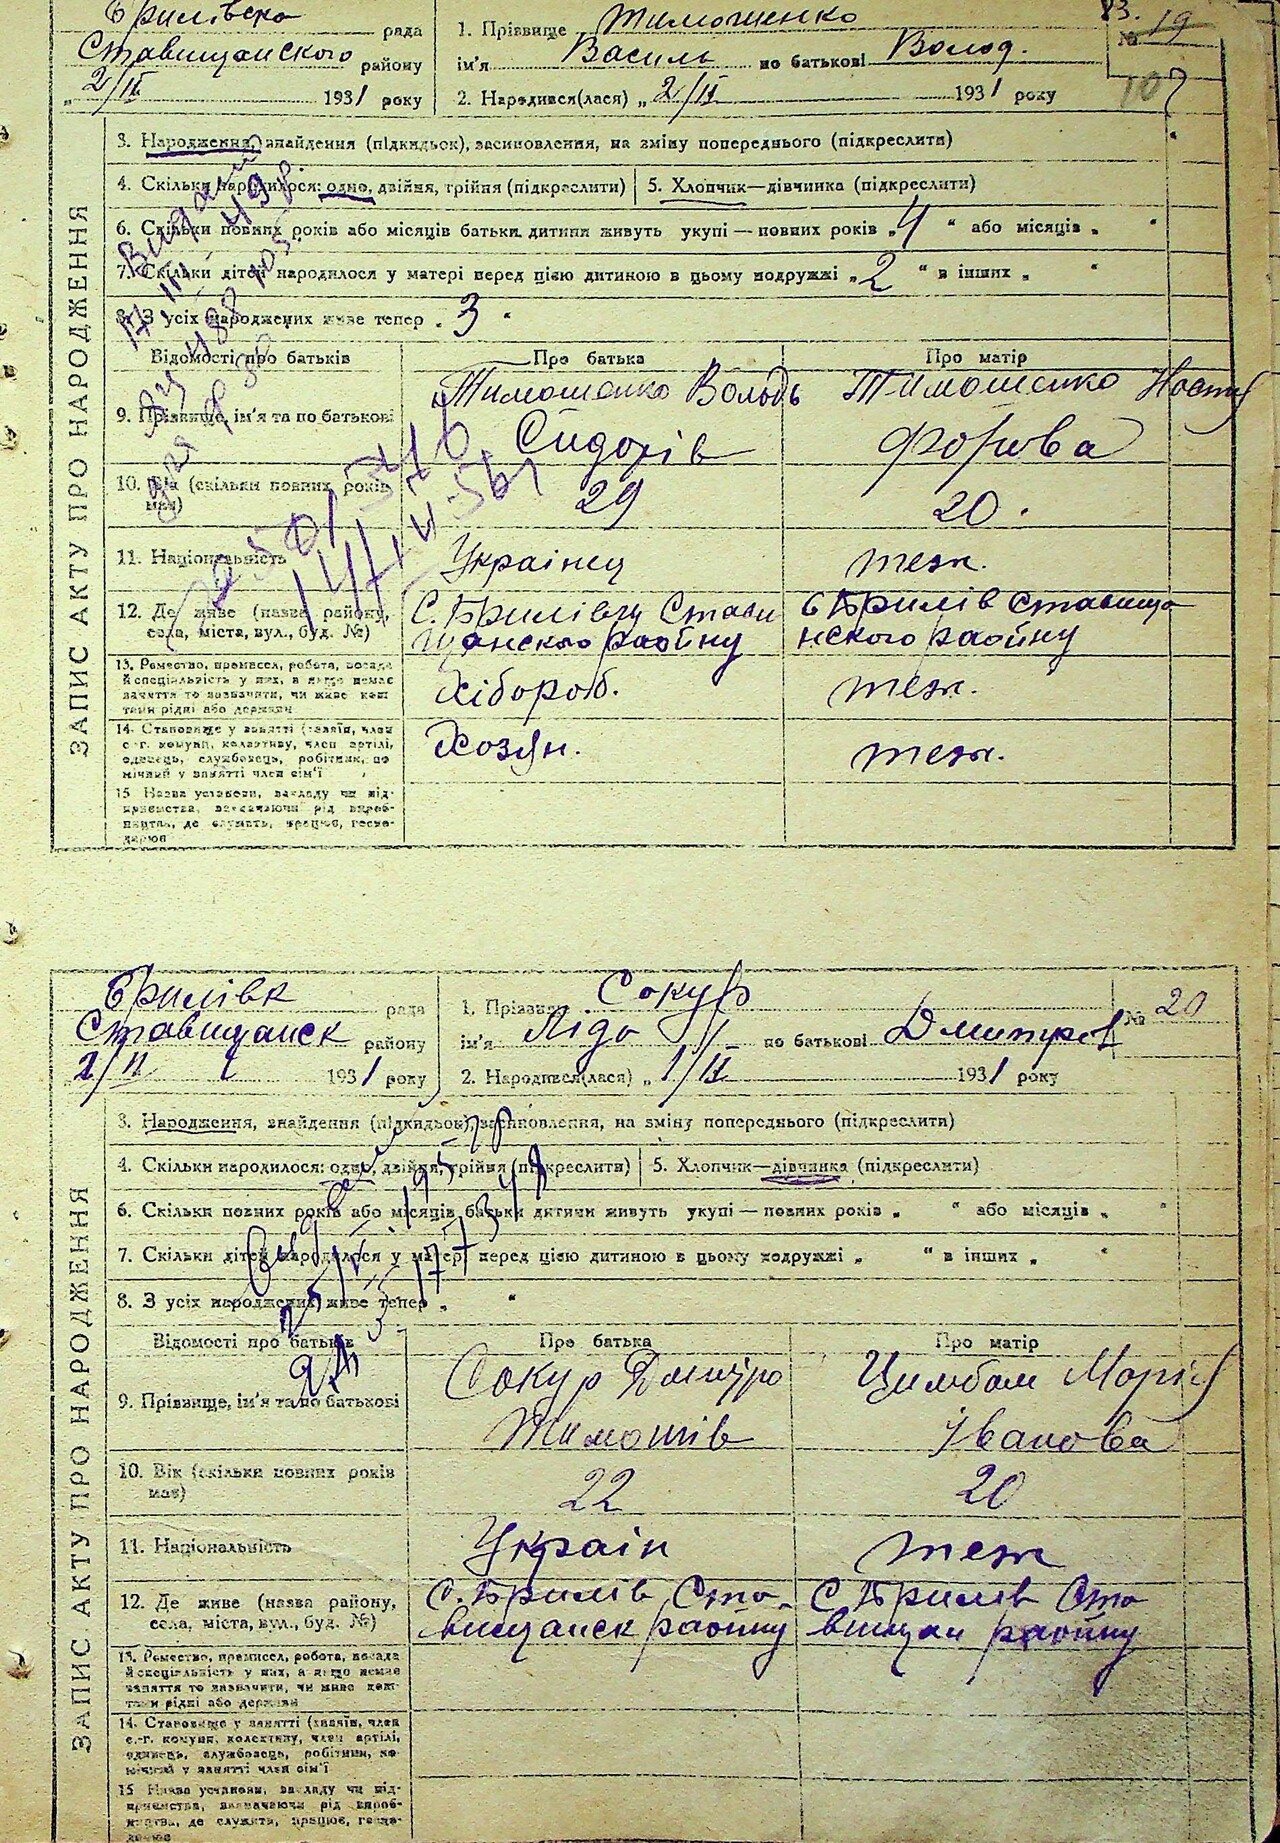 Брилівска рада
Ставищанского району
2/ІІ 1931 року
1. Прізвище Тимошенко
ім'я Василь по батькові Волод.
2. Народився(лася) „ 2/ІІ 1931 року
83.
№ 19
107
ЗАПИС АКТУ ПРО НАРОДЖЕННЯ
3. Народження, знайдення (підкидьок), засиновлення, на зміну попереднього (підкреслити)
4. Скільки народилося: одно, двійня, трійня (підкреслити)
5. Хлопчик—дівчинка (підкреслити)
6. Скільки повних років або місяців батьки дитини живуть укупі — повних років „ 4 “ або місяців „ “
7. Скільки дітей народилося у матері перед цією дитиною в цьому подружжі „ 2 “ в інших „ “
8. З усіх народжених живе тепер „ 3 “
Відомості про батьків
Про батька
Про матір
9. Прізвище, ім'я та по батькові
Тимошенко Володь
Сидорів
Тимошенко
10. Вік (скільки повних років має)
29
20.
11. Національність
Українец
теж.
12. Де живе (назва району, села, міста, вул., буд. №)
С. Брилівці Стави
щанского раойну
с Брилів Ставища
нского раойну
13. Ремество, промисел, робота, посада
й спеціяльність у них, а якщо немає
заняття то зазначити, чи живе кош
тами рідні або держави
Хібороб.
теж.
14. Становище у занятті (хазяїн, член
с.-г. комуни, колективу, член артілі,
одинець, службовець, робітник, по
мічний у занятті член сім'ї
Хозян.
теж.
15 Назва установи, закладу чи під-
приємства, зазначаючи рід вироб-
ництва, де служить, працює, госпо-
дарює
Видано
Брилівк рада
Ставищанск району
2/ІІ 1931 року
1. Прізвище Сокур
ім'я Лідо по батькові Дмитров
2. Народився(лася) „ 1/ІІ 1931 року
№ 20
ЗАПИС АКТУ ПРО НАРОДЖЕННЯ
3. Народження, знайдення (підкидьок), засиновлення, на зміну попереднього (підкреслити)
4. Скільки народилося: одно, двійня, трійня (підкреслити)
5. Хлопчик—дівчинка (підкреслити)
6. Скільки повних років або місяців батьки дитини живуть укупі — повних років „ “ або місяців „ “
7. Скільки дітей народилося у матері перед цією дитиною в цьому подружжі „ “ в інших „ “
8. З усіх народжених живе тепер „ “
Відомості про батьків
Про батька
Про матір
9. Прізвище, ім'я та по батькові
Сокур Дмитро
Тимошів
Цимбал Марія
Іванова
10. Вік (скільки повних років має)
22
20
11. Національність
Україн
теж
12. Де живе (назва району, села, міста, вул., буд. №)
с. Брилів Ста
вищанск раойну
С Брилів Ста
вищан раойну
13. Ремество, промисел, робота, посада
й спеціяльність у них, а якщо немає
заняття то зазначити, чи живе кош
тами рідні або держави
14. Становище у занятті (хазяїн, член
с.-г. комуни, колективу, член артілі,
одинець, службовець, робітник, по
мічний у занятті член сім'ї
15 Назва установи, закладу чи під-
приємства, зазначаючи рід вироб-
ництва, де служить, працює, госпо-
дарює